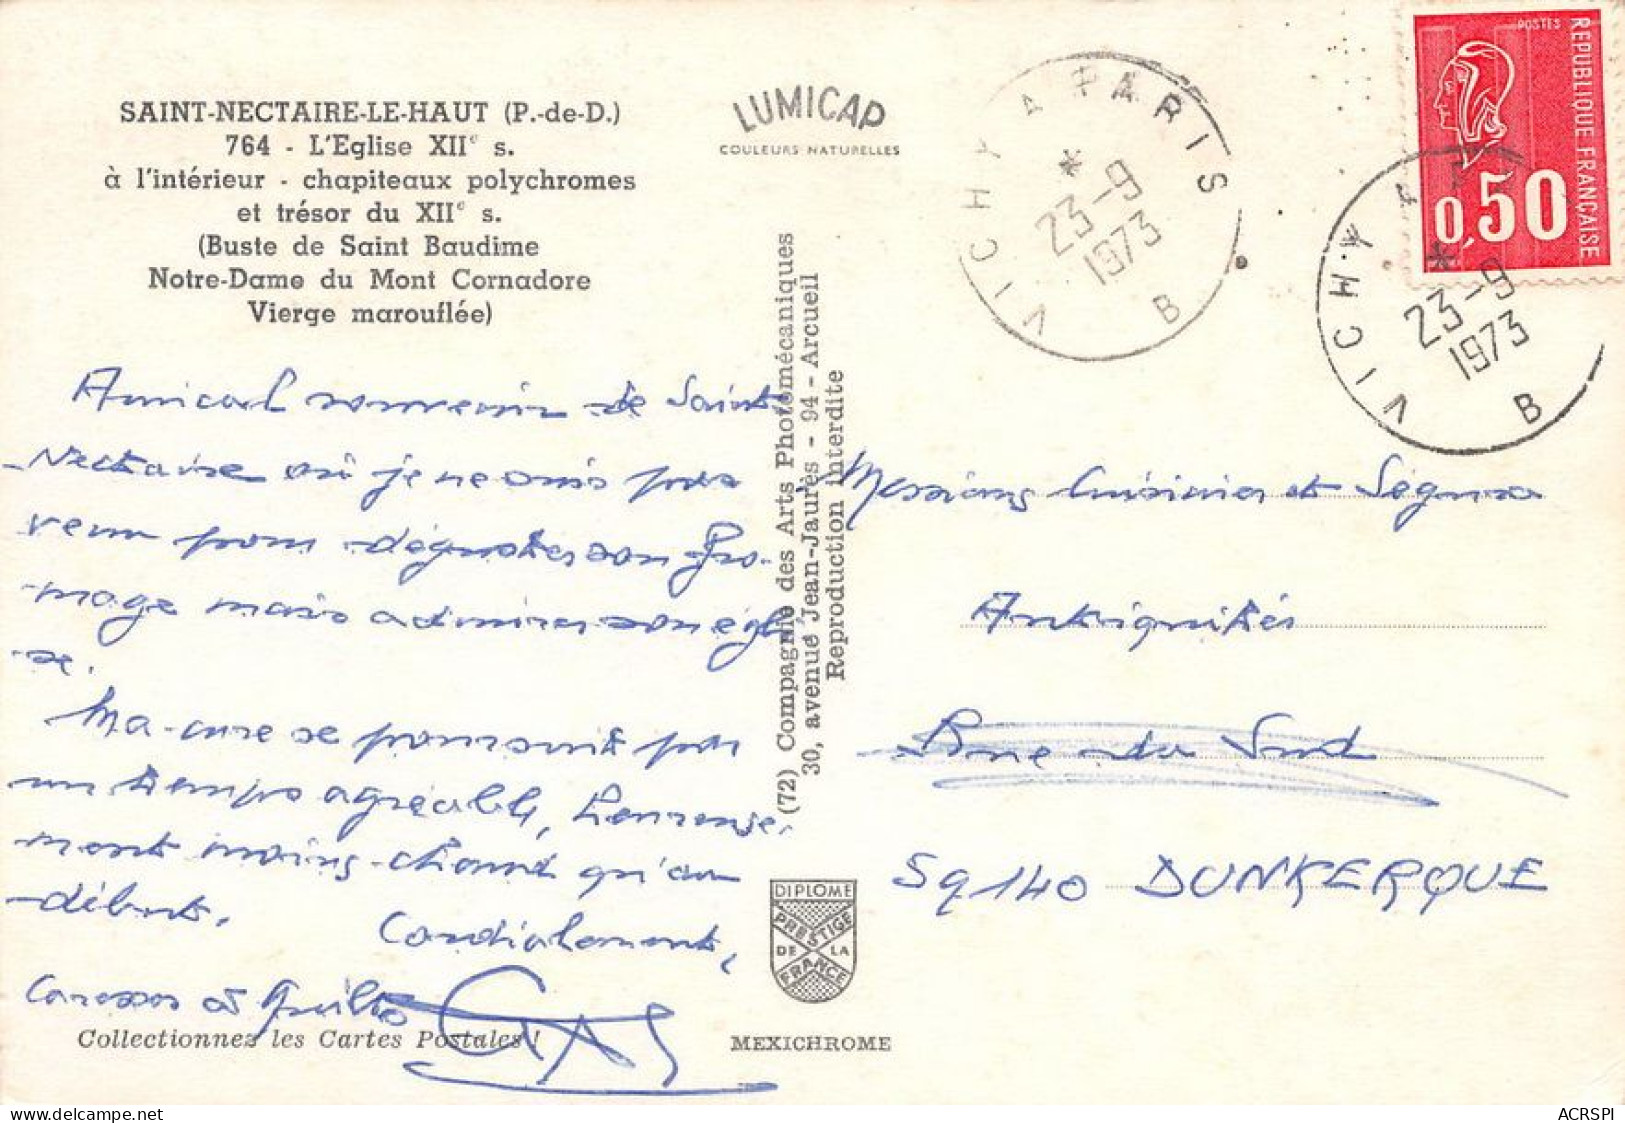 SAINT-NECTAIRE-LE-HAUT (P.-de-D.)
764 - L'Eglise XIIe s.
à l'intérieur - chapiteaux polychromes
et trésor du XIIe s.
(Buste de Saint Baudime
Notre-Dame du Mont Cornadore
Vierge marouflée)
LUMICAP
COULEURS NATURELLES
VICHY A PARIS
*
23-9
1973
B
POSTES
REPUBLIQUE FRANÇAISE
0,50
VICHY A
*
23-9
1973
B
Amical souvenir de Saint
Nectaire où je ne suis pas
venu pour déguster son fro-
mage mais admirer son égli
se.
Ma cure se poursuit par
un temps agréable, heureuse-
ment moins chaud qu'au
début.
Cordialement,
Caresses à
Collectionnez les Cartes Postales !
(72) Compagnie des Arts Photomécaniques
30, avenue Jean-Jaurès - 94 - Arcueil
Reproduction interdite
DIPLOME
PRESTIGE
DE LA
FRANCE
MEXICHROME
Messieurs et
Antiquités
Rue du Sud
59140 DUNKERQUE
ACRSPI